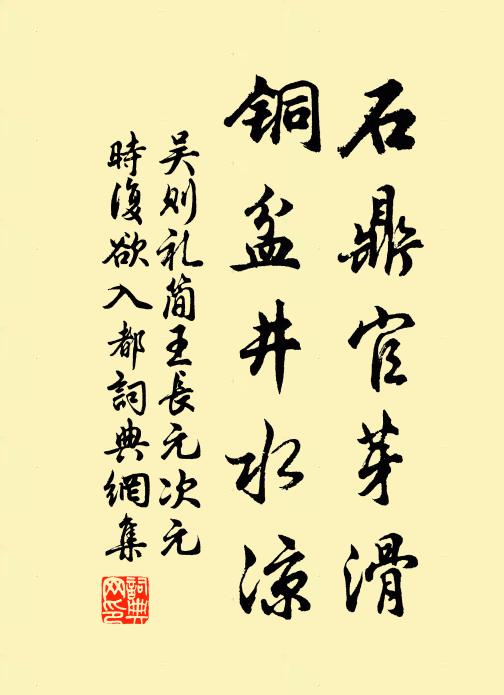 石鼎官芽滑
銅盆井水涼
吴则礼简王長元次元
時復欲入都詞典網集
詞典网印